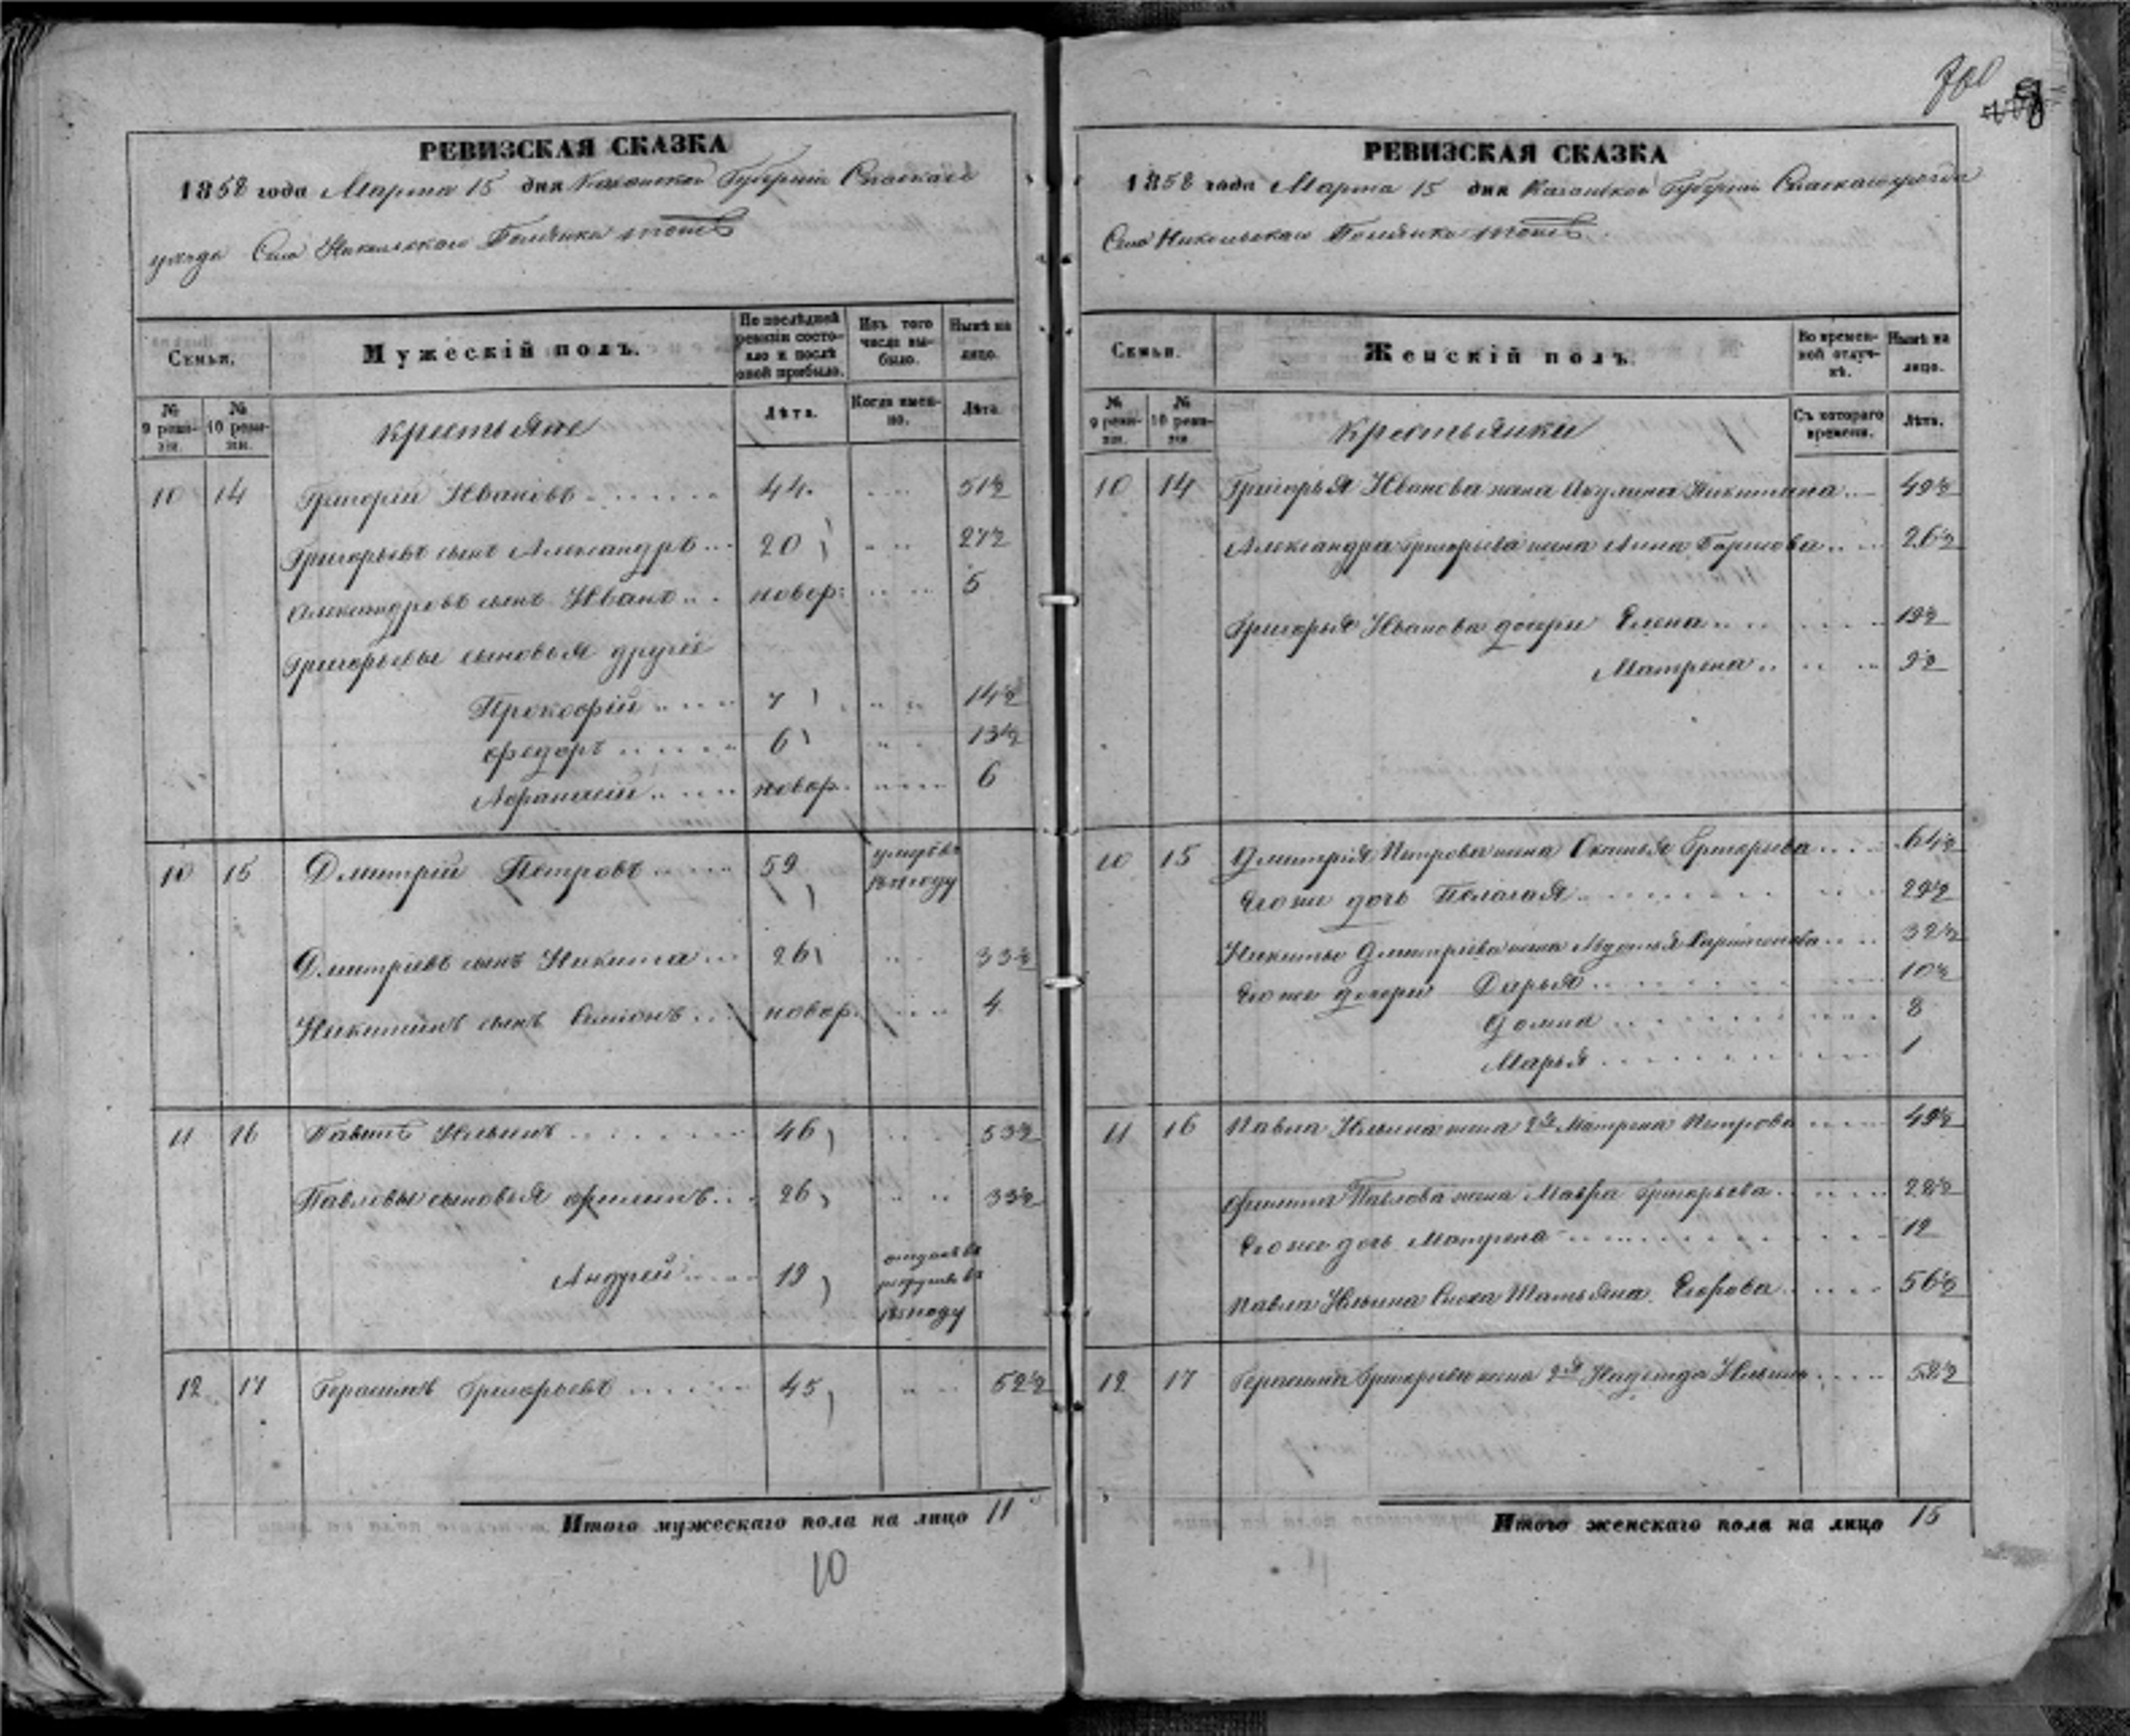 РЕВИЗСКАЯ СКАЗКА
1858 года Марта 15 дня Казанской Губерніи Спаскаго
уѣзда Села Никольскаго
Семьи.
Мужескій полъ.
По послѣдней ревизіи состояло и послѣ оной прибыло.
Изъ того числа выбыло.
Нынѣ на лицо.
№ 9 ревизіи.
№ 10 ревизіи.
крестьяне
Лѣта.
Когда именно.
Лѣта.
10 14 Григорій Ивановъ 44 51½
Григорьевъ сынъ Александръ 20 27½
Александровъ сынъ Иванъ новор: 5
Григорьевы сыновья другіе
Прокофій 7 14½
Федоръ 6 13½
Афанасій новор. 6
10 15 Дмитрій Петровъ 59 умеръ въ году
Дмитріевъ сынъ Никита 26 33½
Никитинъ сынъ Симіонъ новор. 4
11 16 Павелъ Ильинъ 46 53½
Павловы сыновья Филипъ 26 33½
Андрей 19 отданъ въ рекруты въ году
12 17 Герасимъ Григорьевъ 45 52½
Итого мужескаго пола на лицо 11
10
РЕВИЗСКАЯ СКАЗКА
1858 года Марта 15 дня Казанской Губерніи Спаскаго уѣзда
Села Никольскаго
Семьи.
Женскій полъ.
Во временной отлучкѣ.
Нынѣ на лицо.
№ 9 ревизіи.
№ 10 ревизіи.
крестьянки
Съ котораго времени.
Лѣта.
10 14 Григорья Иванова жена Акулина Никитина 49½
Александра Григорьева жена Анна Борисова 26½
Григорья Иванова дочери Елена 19½
Матрена 9½
10 15 Дмитрія Петрова жена Григорьева 64½
Его же дочь Пелагая 29½
Никиты Дмитріева жена Авдотья Харитонова 32½
Его же дочери Дарья 10½
Домна 8
Марья 1
11 16 Павла Ильина жена 2я Матрена Петрова 49½
Филипа Павлова жена Мавра Григорьева 28½
Его же дочь Матрена 12
Павла Ильина Сноха Татьяна Егорова 56½
12 17 Герасима Григорьева жена 2я Надежда Ильина 58½
Итого женскаго пола на лицо 15